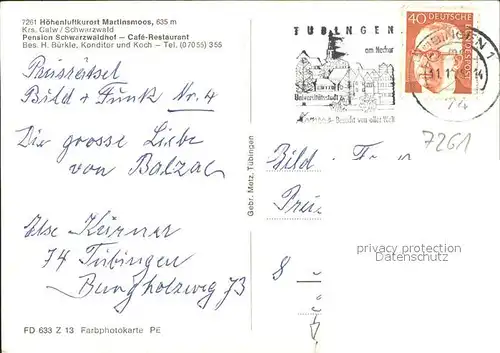 7261 Höhenluftkurort Martinsmoos, 635 m
Krs. Calw / Schwarzwald
Pension Schwarzwaldhof — Café-Restaurant
Bes. H. Bürkle, Konditor und Koch — Tel. (07055) 355
Preisrätsel
Bild + Funk Nr. 4
Die grosse Liebe
von Balzac
Else Kürner
74 Tübingen
Burgholzweg 73
FD 633 Z 13 Farbphotokarte PE
Gebr. Metz, Tübingen
TÜBINGEN
am Neckar
Universitätsstadt
Besucht von aller Welt
40
DEUTSCHE BUNDESPOST
74
7261
Bild
Prei
8
privacy protection
Datenschutz